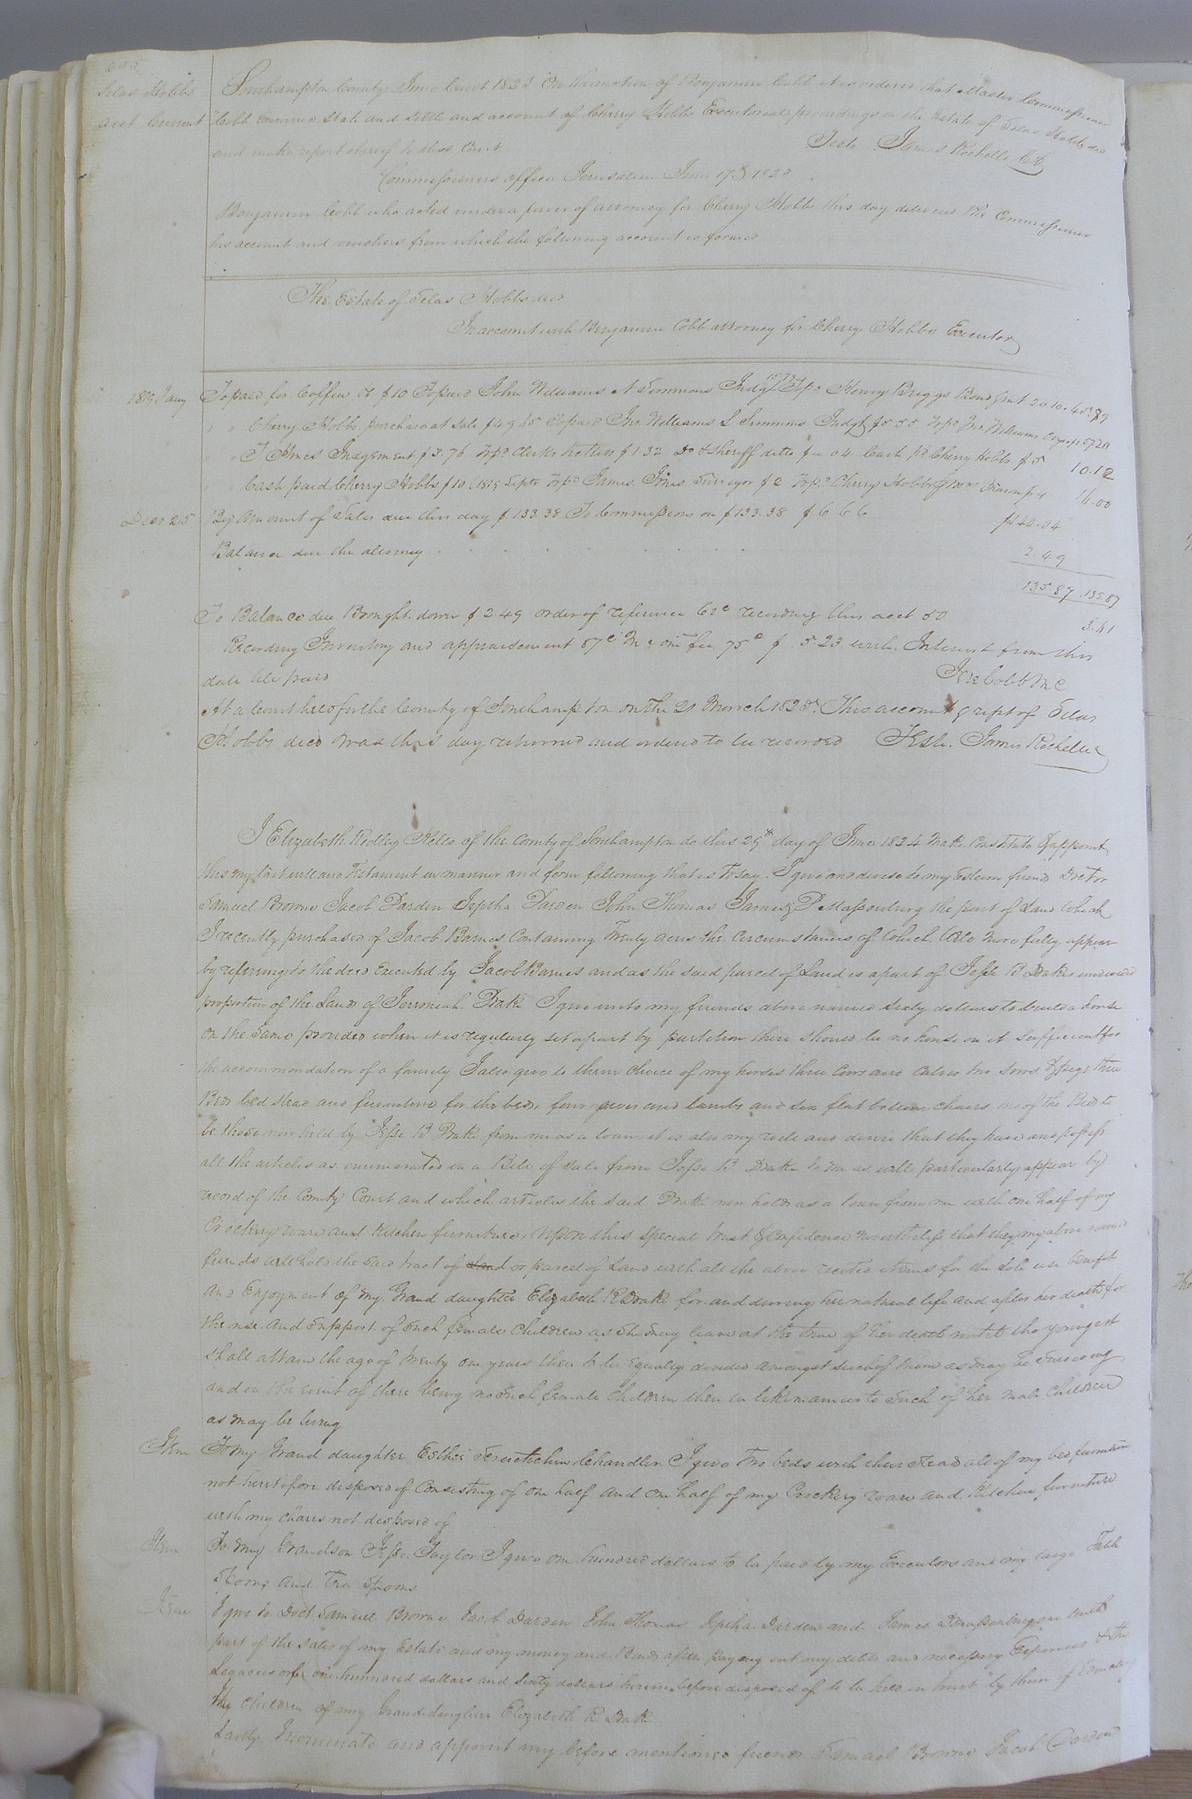 Silas Hobbs
acct Current
Southampton County June Court 1823 On the motion of Benjamin Cobb it is ordered that Master Commissioner
Cobb examine state and settle and account of Cherry Hobbs Executor proceedings on the Estate of Silas Hobbs decd
and make report thereof to this Court Teste James Rochelle CC
Commissioners office Jerusalem June 17th 1823
Benjamin Cobb who acted under a power of attorney for Cherry Hobbs this day delivered the Commissioner
his account and vouchers from which the following account is formed
The Estate of Silas Hobbs decd
In account with Benjamin Cobb attorney for Cherry Hobbs Executor
1819 Jany To paid for Coffin &c $10 To paid John Williams N Simmons Judgt Henry Briggs Bond & int 20.10
" " Cherry Hobbs purchase at Sale $49.65 To paid Jno Williams S Simmons Judgt Jno Williams
" " T Jones Judgement $3.76 Clerks tickets $1.32 Do & Sheriff ditto Cash pd Cherry Hobbs $5 10.12
" Cash paid Cherry Hobbs $10 1819 Septr James Jones Surveyor $2 Cherry Hobbs 16.00
Decr 25 By Amount of Sales due this day $133.38 To Commissions on $133.38 $6.66 $140.04
Balance due the attorney 2.49
135.87 135.87
To Balance due Brought down $2.49 order of reference 62c recording this acct 50 3.61
Recording Inventory and appraisement 87c 75c $5.23 with Interest from this
date till paid Jere Cobb MC
At a Court held for the County of Southampton on the 21 March 1825 This account & rept of Silas
Hobbs decd was this day returned and ordered to be recorded Teste. James Rochelle
I Elizabeth Ridley Kello of the County of Southampton do this 29th day of June 1824 make constitute & appoint
this my last will and Testament in manner and form following that is to say. I give and devise to my Esteem friend Doctor
Samuel Browne Jacob Darden Jeptha Darden John Thomas James P Massenburg the part of Land which
I recently purchased of Jacob Barnes Containing Twenty acres the circumstances of which will more fully appear
by refering to the deed Executed by Jacob Barnes and as the said parcel of Land is a part of Jesse B Drakes undivided
proportion of the Land of Jerremiah Drake I give unto my friends above named Sixty dollars to build a house
on the same provided when it is regularly set apart by partition there should be no house on it sufficient for
the accommodation of a family I also give to them choice of my horses three Cows and calves two Sows & pigs three
Beds bed stead and furniture for the beds four ewes and lambs and six flat bottom chairs one of the Beds to
be those now held by Jesse B Drake from me as a loan it is also my will and desire that they have and possess
all the articles as enumerated in a Bill of Sale from Jesse B Drake to me as will particularly appear by
record of the County Court and which articles the said Drake now holds as a loan from me with one half of my
Crockery ware and kitchen furniture. Upon this Special trust & Confidence nevertheless that they my above named
friends will hold the said tract of land or parcel of Land with all the above recited items for the Sole use benefit
and Enjoyment of my Grand daughter Elizabeth R Drake for and during her natural life and after her death for
the use and support of such female children as she may leave at the time of her death until the youngest
shall attain the age of twenty one years then to be Equally divided amongst such of them as may be surviving
and in the event of there being no such female children then in like manner to such of her male children
as may be living
Item To my Grand daughter Esther Chandler I give two beds with their stead all of my bed furniture
not heretofore disposed of Consisting of one half and one half of my Crockery ware and kitchen furniture
with my chairs not disposed of
Item To my Grandson Jesse Taylor I give one hundred dollars to be paid by my Executors and my large Table
Spoons and Tea Spoons
Item I give to Doct Samuel Browne Jacob Darden John Thomas Jeptha Darden and James P Massenburg
part of the sales of my Estate and my money and Bonds after paying out my debts and necessary Expences & the
Legacies of one hundred dollars and Sixty dollars herein before disposed of to be held in trust by them
the children of my Granddaughter Elizabeth R Drake
Lastly I nominate and appoint my before mentioned friends Samuel Browne Jacob Darden